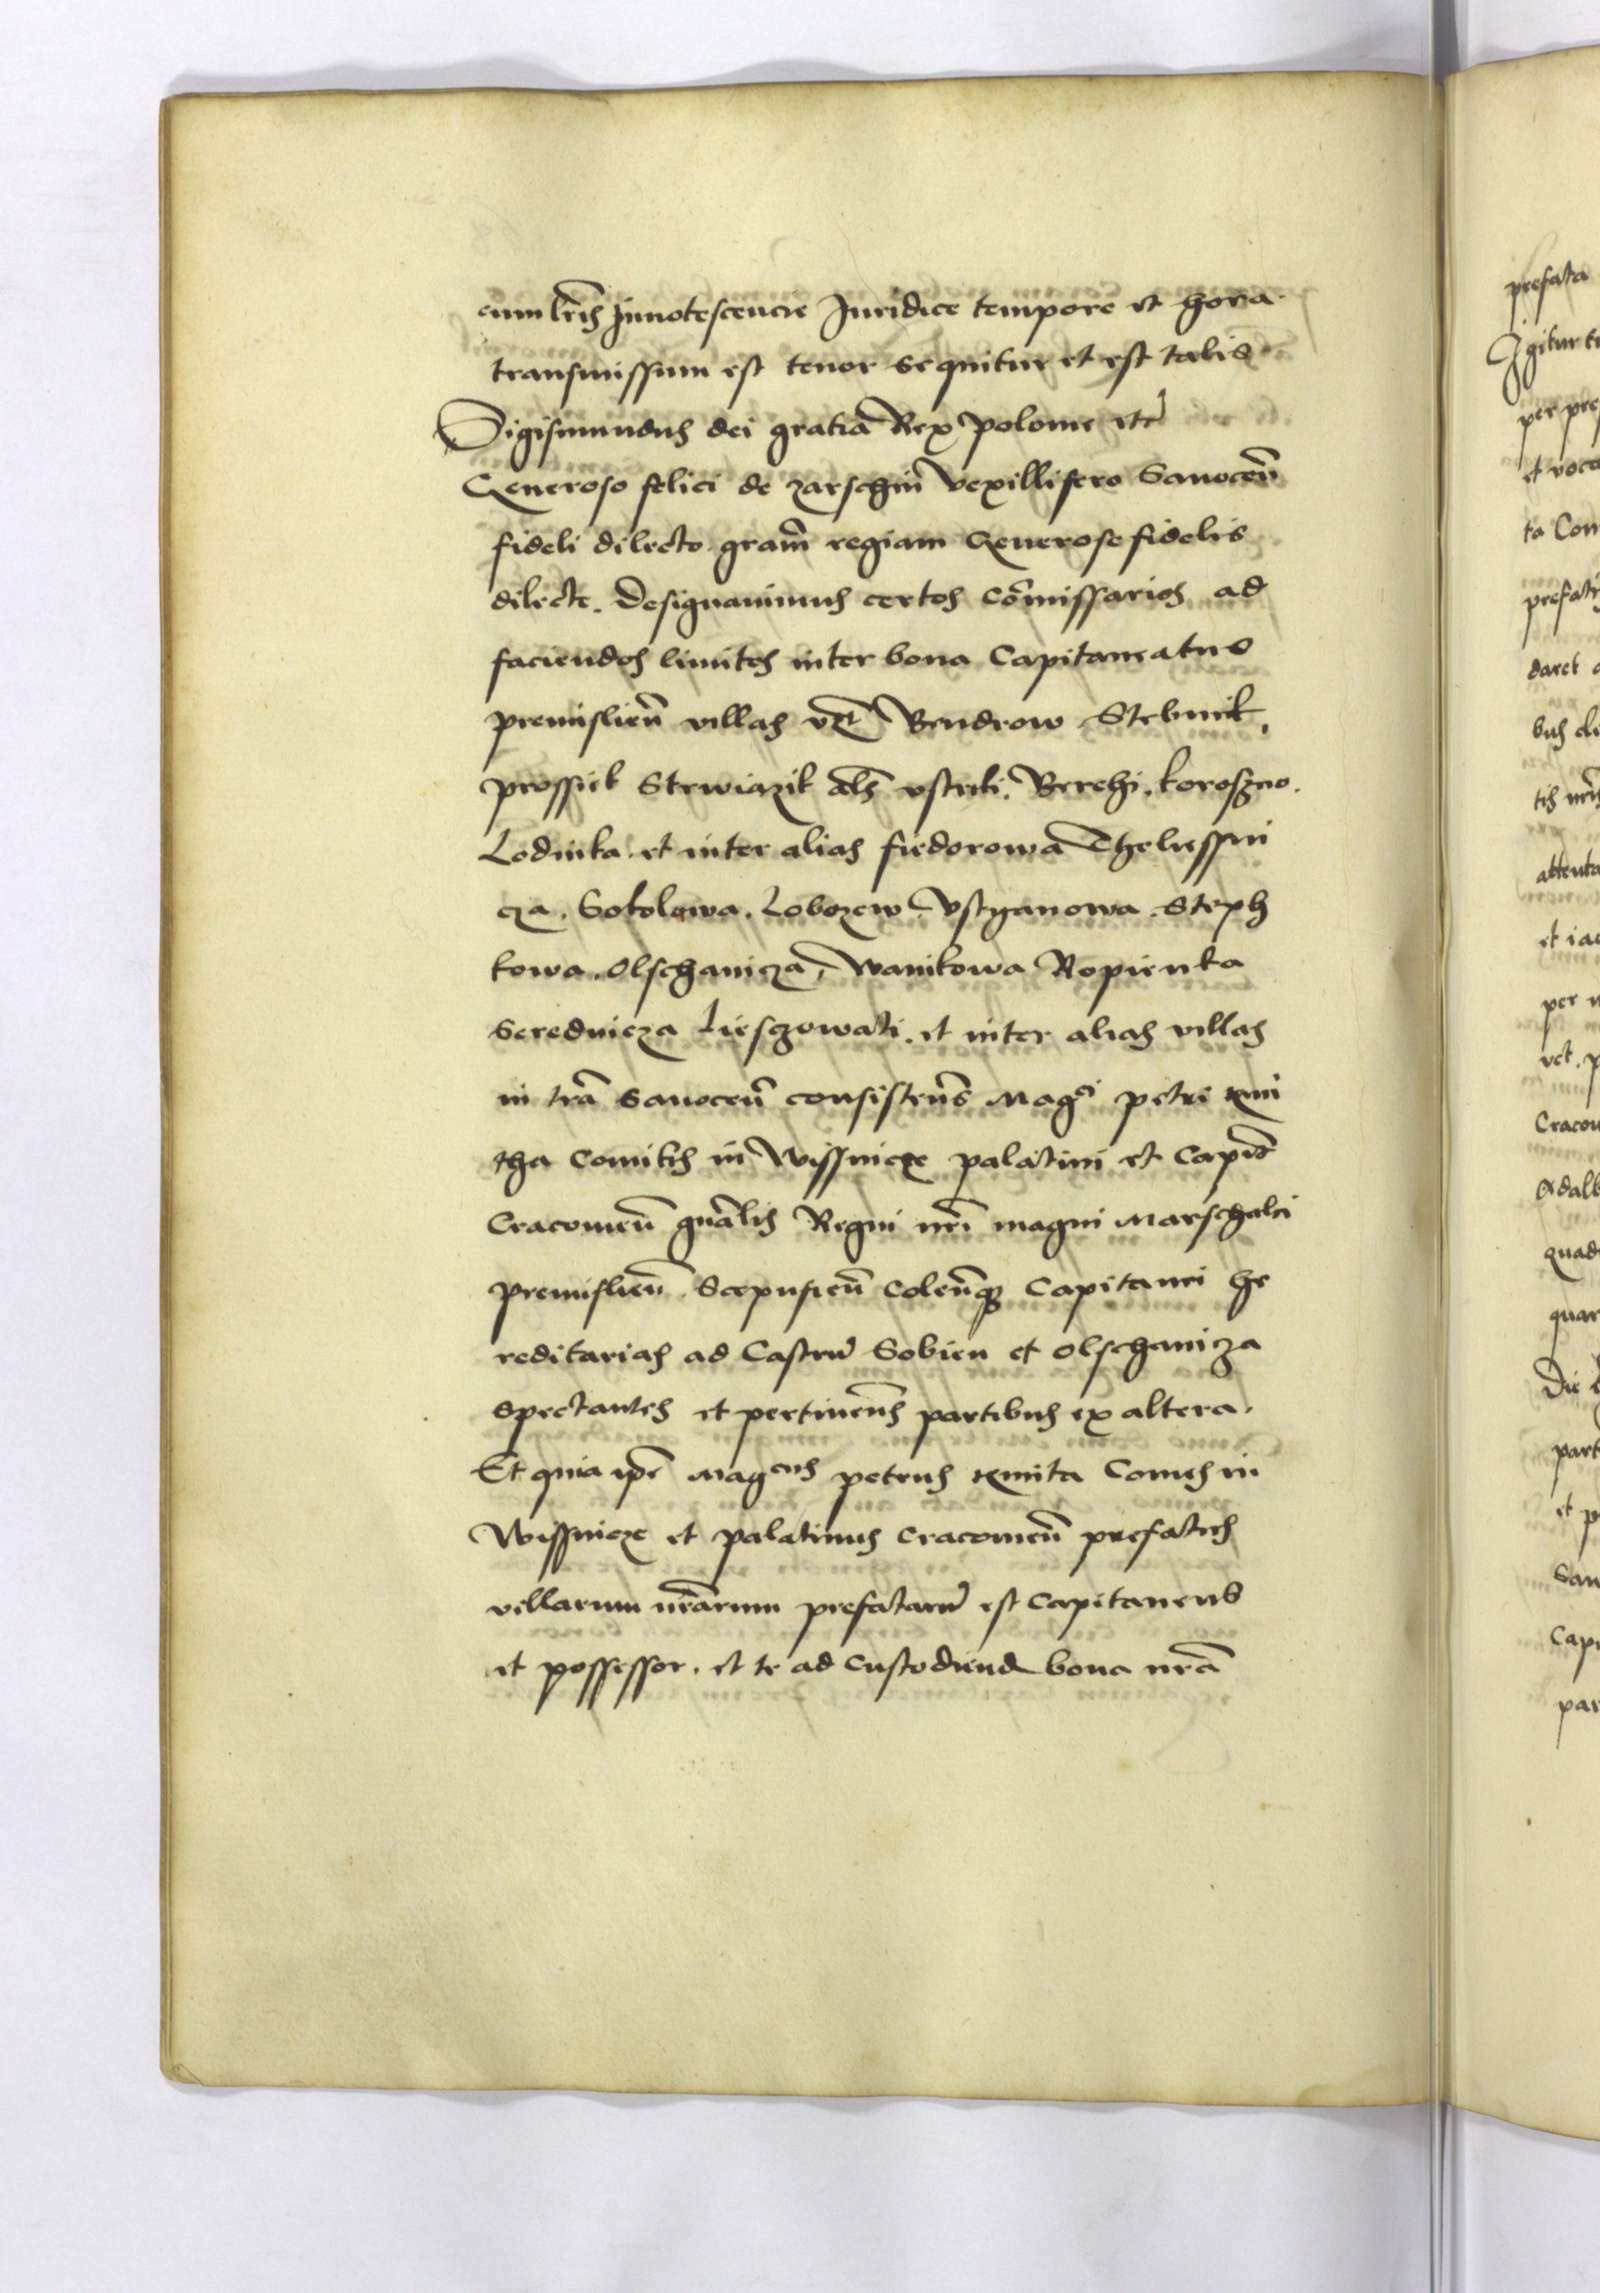 cum lr̃is Innotescencie Juridice tempore et hora
transmissum est tenor sequitur et est talis
Sigismundus dei gratia Rex polonie etc̃
Generoso felici de zarschin Vexillifero Sanoceñ
fideli dilecto gram̃ regiam Generose fidelis
dilecte. Designauimus certos Com̃issarios ad
faciendos limites inter bona Capitaneatus
premislieñ villas vꝫ Bendrow Stebnik,
prossiek Strwiazik al̃s vstriki. Berehi. koroszno.
Lodinka. et inter alias fiedorowa Theliessni
cza. Sokolowa. Lobozew. Vstyanowa. Steph
kowa. Olschanicza, Wanikowa Ropienka
Serednicza Liesczowati. et inter alias villas
in tr̃a Sanoceñ consisteñs Mag^ci petri kmi
tha Comitis in Wissnicze palatini et Capit̃
Cracouieñ gñalis Regni nr̃i magni Marschalci
premislieñ. Scepusieñ Coleñq̃ Capitanei he
reditarias ad Castrũ Sobien et Olschanicza
spectantes et pertineñs partibus ex altera.
Et quia ip̃e Mag^cus petrus kmita Comes in
Wissnicze et palatinus Cracouieñ prefatis
villarum nr̃arum prefatarũ est Capitaneus
et possessor. et te ad custodiend bona nr̃a
prefata
Igitur
et voca
ta Com
daret
per
Cracou
quar
part
et p
San
Capi
par